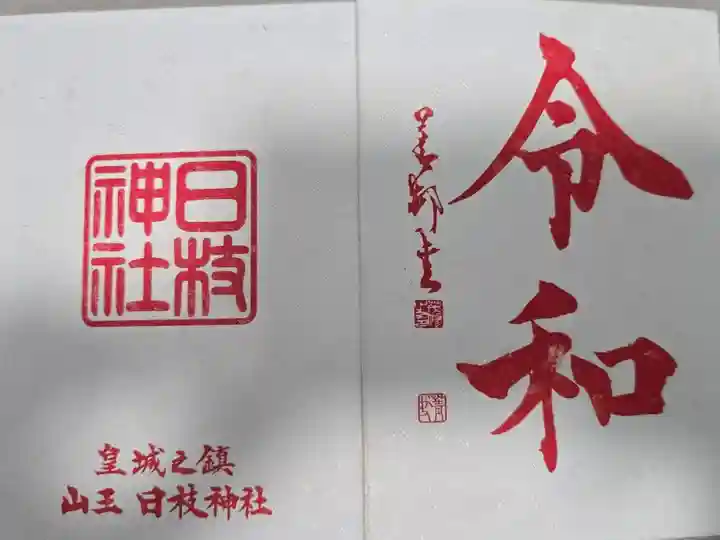 日枝
神社
皇城之鎮
山王 日枝神社
令和